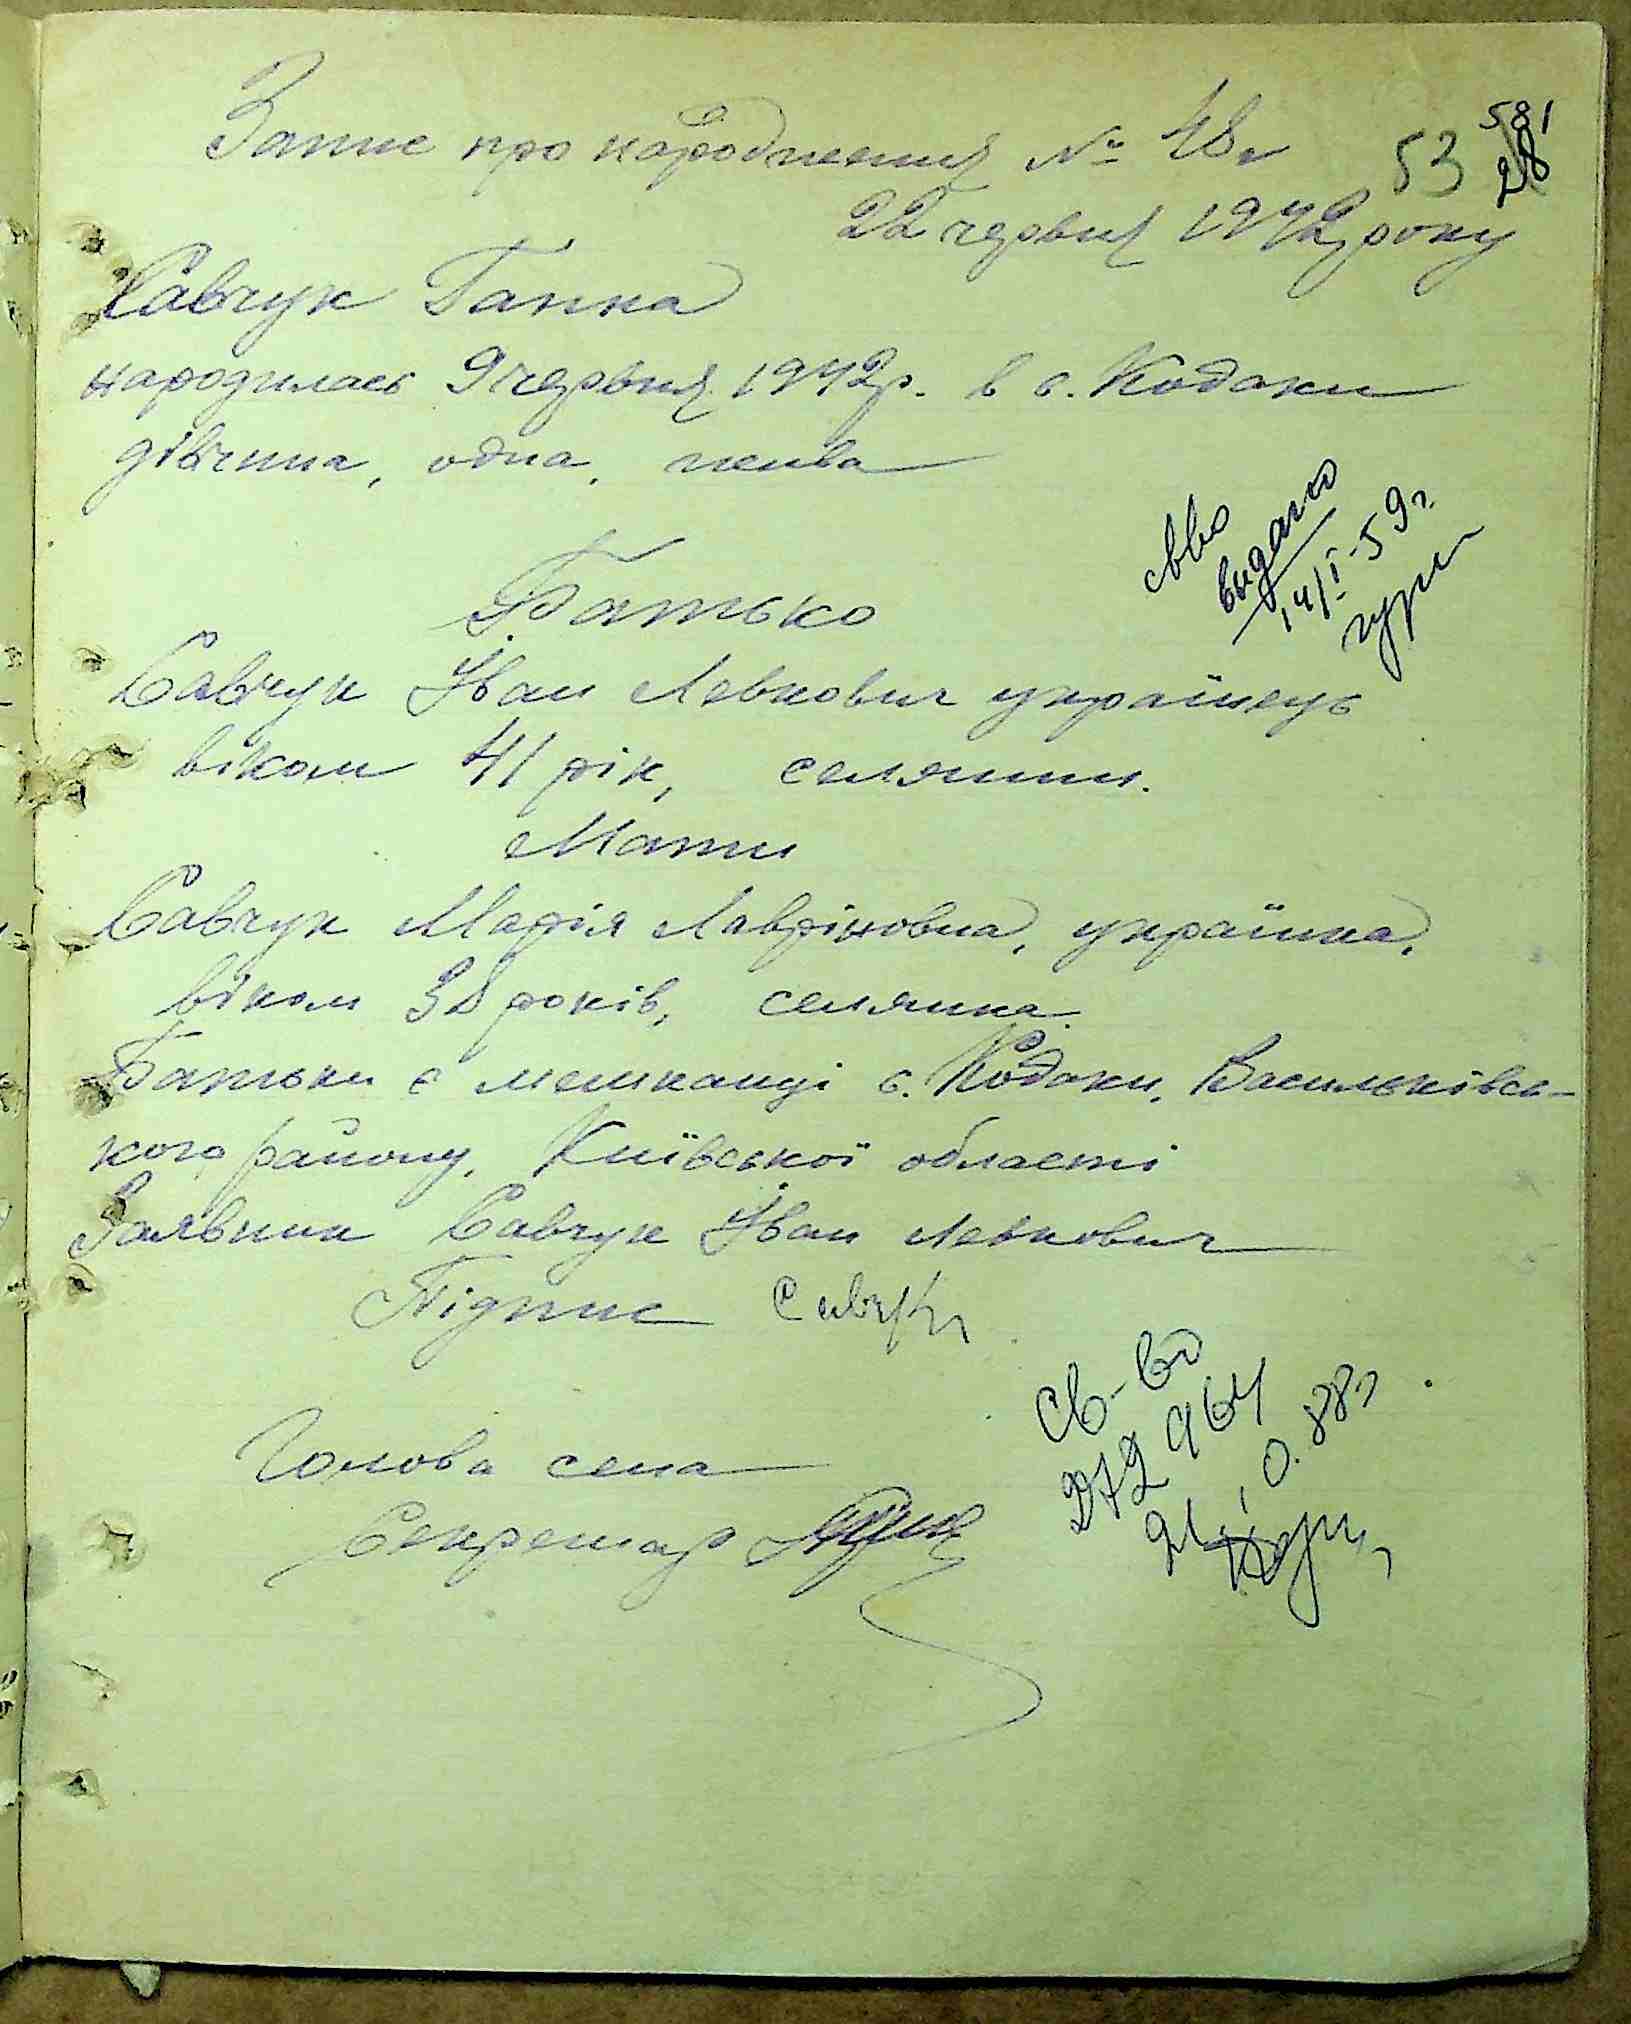 Запис про народження № 48
53
581
28
22 червня 1942 року
Савчук Ганна
народилась 9 червня 1942р. в с. Кодаки
дівчина, одна, жива
св-во
видано
14/I-59г.
Батько
Савчук Іван Левкович українець
віком 41 рік, селянин.
Мати
Савчук Марія Лавріновна, українка,
віком 38 років, селянка.
Батьки є мешканці с. Кодаки, Васильківсь-
кого району, Київської області
Заявник Савчук Іван Левкович
Підпис Савчук
св-во
272964
21.10.88г
Голова села
Секретар